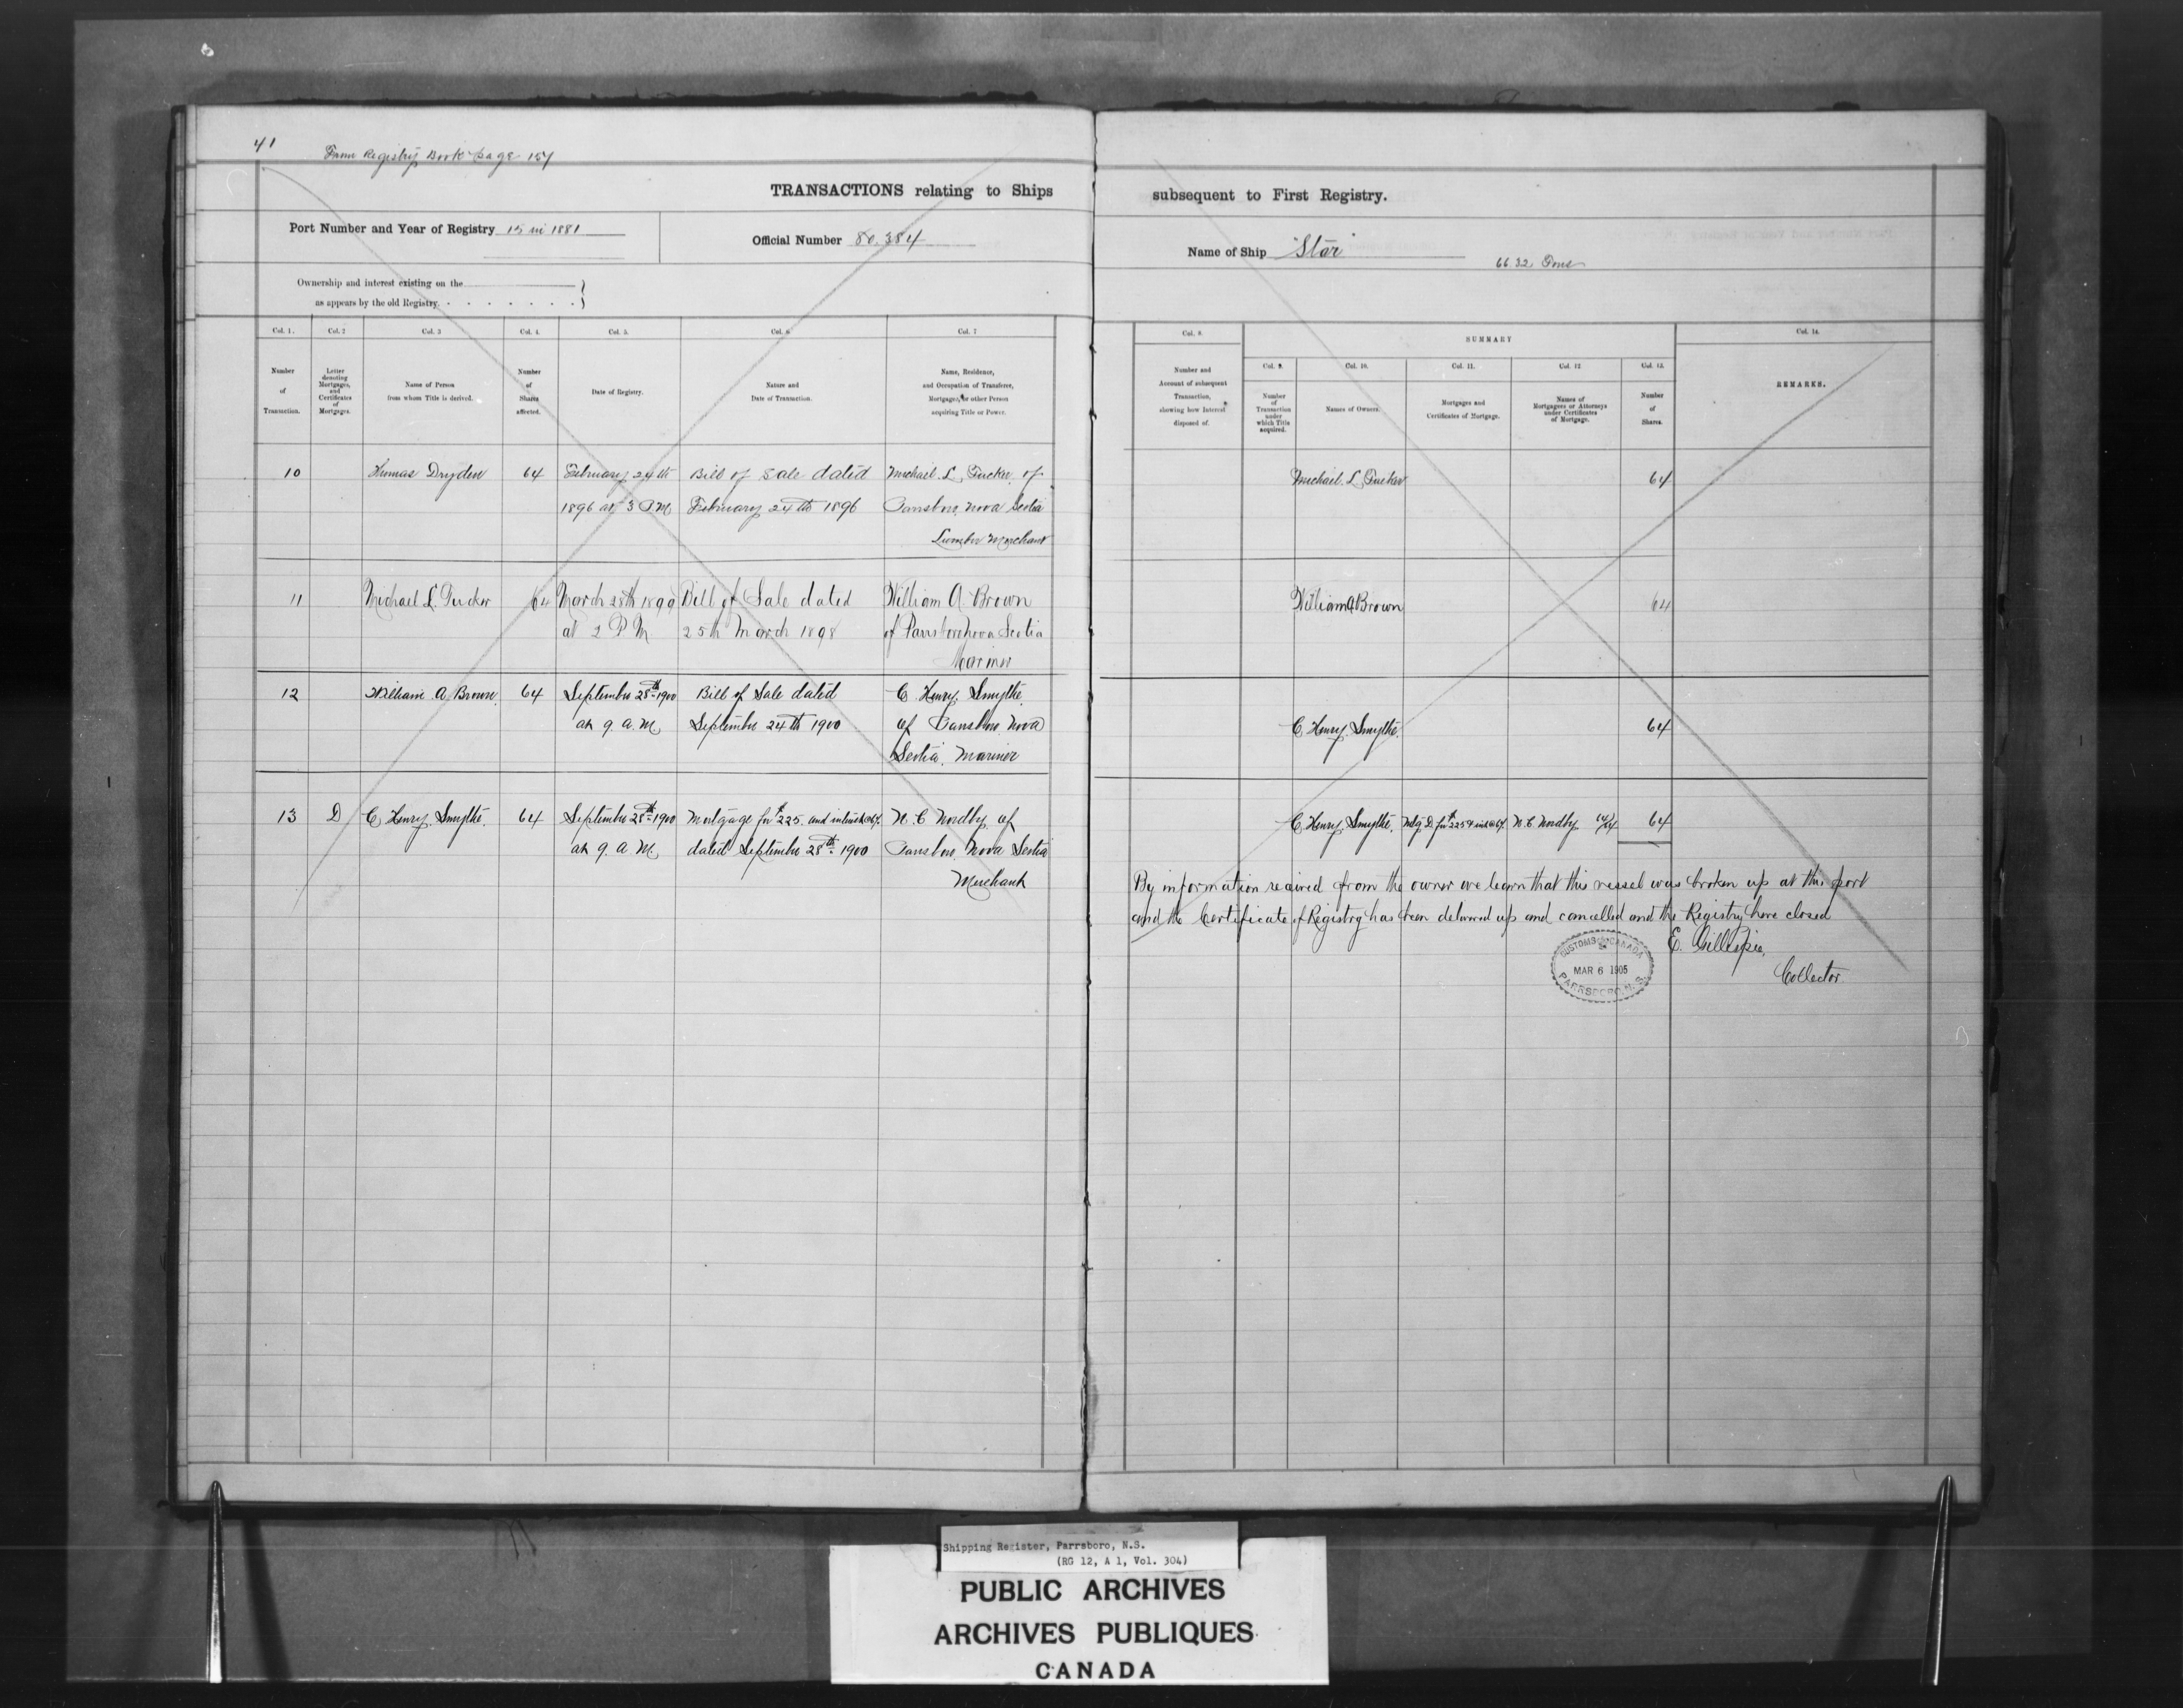 41
From Registry Book Page 151
TRANSACTIONS relating to Ships
subsequent to First Registry.
Port Number and Year of Registry 15 in 1881
Official Number 80.384
Name of Ship "Star"
66.32 Tons
Ownership and interest existing on the
as appears by the old Registry.
Col. 1. Col. 2 Col. 3 Col. 4. Col. 5. Col. 6 Col. 7
Number of Transaction.
Letter denoting Mortgages, and Certificates of Mortgages.
Name of Person from whom Title is derived.
Number of Shares affected.
Date of Registry.
Nature and Date of Transaction.
Name, Residence, and Occupation of Transferee, Mortgagee, or other Person acquiring Title or Power.
Col. 8. SUMMARY Col. 14.
Col. 9. Col. 10. Col. 11. Col. 12. Col. 13.
Number and Account of subsequent Transaction, showing how Interest disposed of.
Number of Transaction under which Title acquired.
Names of Owners.
Mortgages and Certificates of Mortgage.
Names of Mortgagees or Attorneys under Certificates of Mortgage.
Number of Shares.
REMARKS.
10 Thomas Dryden 64 February 24th Bill of Sale dated Michael. L. Tucker. of
1896 at 3 P.M February 24th 1896 Parrsboro. Nova Scotia
Lumber Merchant
Michael. L. Tucker 64
11 Michael L. Tucker 64 March 28th 1899 Bill of Sale dated William A. Brown
at 2 P.M. 25th March 1898 of Parrsboro Nova Scotia
Mariner
William A Brown 64
12 William A. Brown. 64 September 28th 1900 Bill of Sale dated C. Henry. Smythe.
at 9. a.M. September 24th 1900 of Parrsboro. Nova
Scotia. Mariner
C. Henry. Smythe. 64
13 D C. Henry. Smythe. 64 September 28th 1900 Mortgage for $225. and interest @ 6%. N. C Nordby. of
at 9. a.M. dated September 28th. 1900 Parrsboro. Nova Scotia
Merchant
C. Henry. Smythe. Mtg. D. for $225 & int @ 6%. N. C Nordby 64/64 64
By information received from the owner we learn that this vessel was broken up at this port
and the Certificate of Registry has been delivered up and cancelled and the Registry here closed
E. Gillespie,
Collector.
CUSTOMS CANADA
MAR 6 1905
PARRSBORO, N. S.
Shipping Register, Parrsboro, N.S.
(RG 12, A 1, Vol. 304)
PUBLIC ARCHIVES
ARCHIVES PUBLIQUES
CANADA